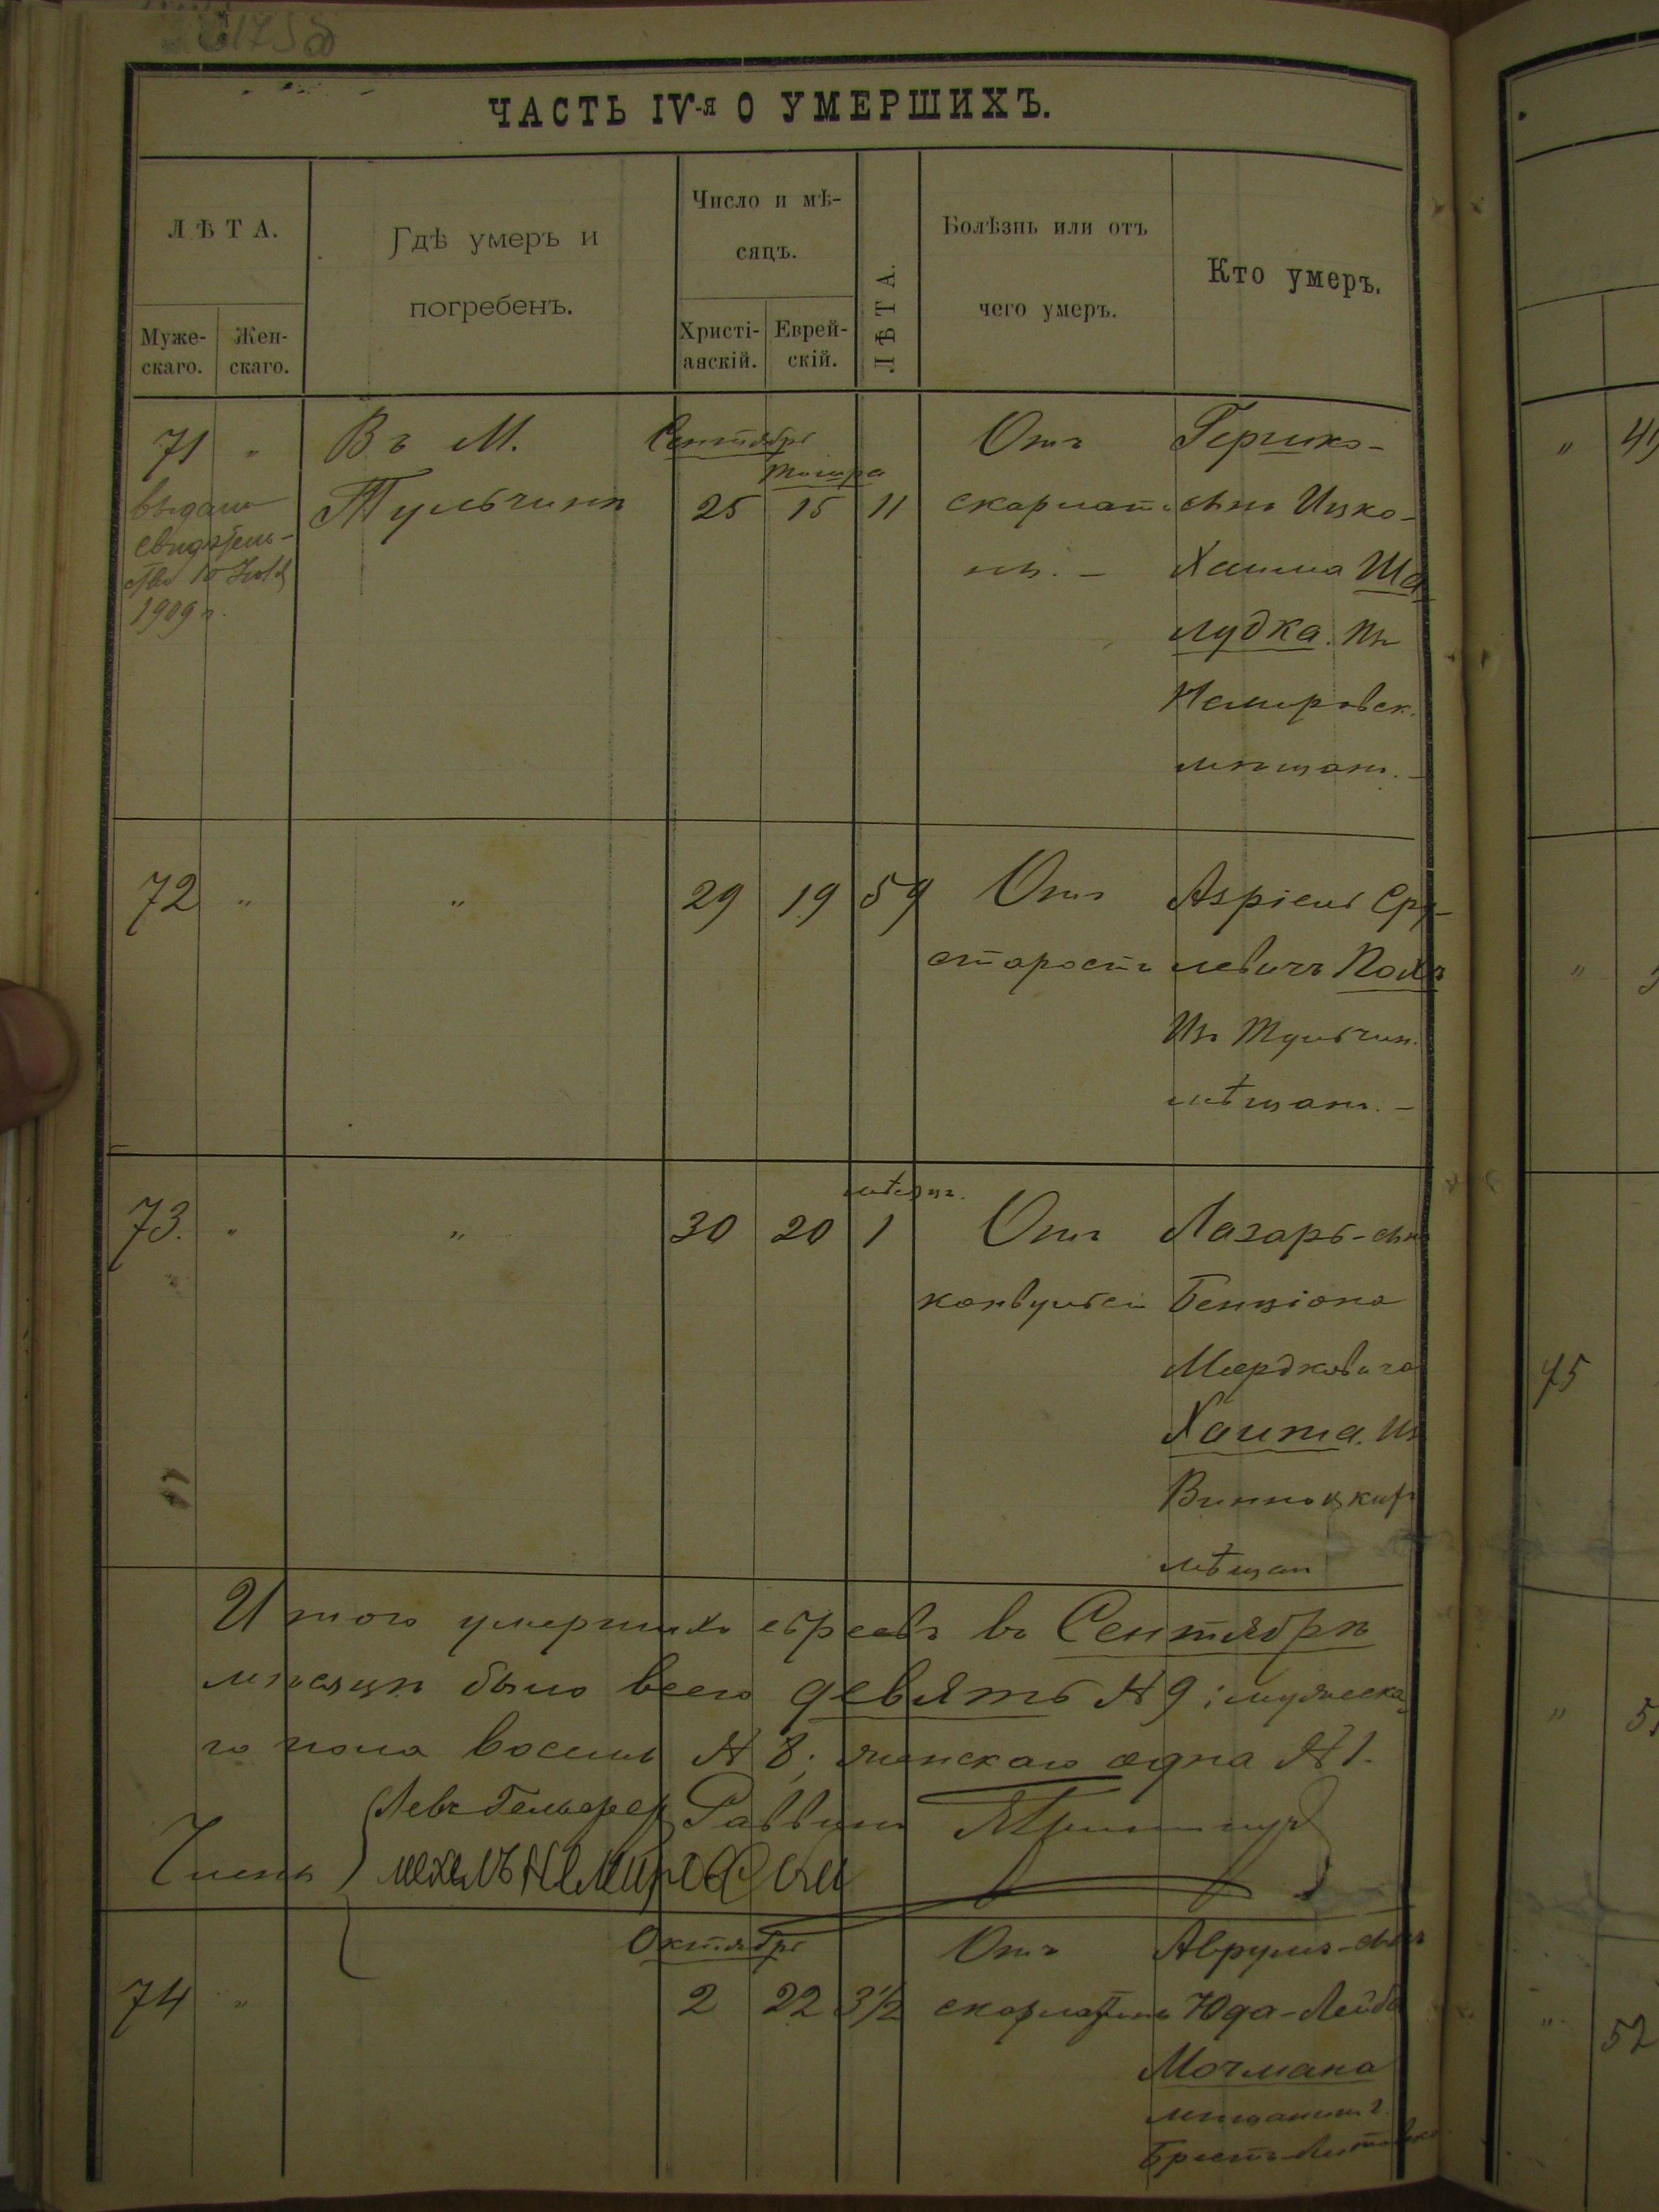 ЧАСТЬ IV-я О УМЕРШИХЪ.
ЛѢТА.
Муже-
скаго.
Жен-
скаго.
Гдѣ умеръ и
погребенъ.
Число и мѣ-
сяцъ.
Христі-
анскій.
Еврей-
скій.
ЛѢТА.
Болѣзнь или отъ
чего умеръ.
Кто умеръ.
71 "
выдано
свидѣтель-
ство 10
1909 г.
Въ М.
Тульчинѣ
Сентября
Тишра
25 15 11
Отъ
скарлати-
ны. –
Гершко-
сынъ Ицко-
Хаима Ша
лудка. Изъ
Немировск.
мѣщанъ. –
72 " " 29 19 59
Отъ
старости
Сру-
левичъ Полъ
Изъ Тульчин.
мѣщанъ. –
73. " " 30 20
мѣсяц.
1
Отъ
конвульсій
Лазарь-сынъ
Бенціона
Мордковича
Хаита. Изъ
Винницкихъ
мѣщан
Итого умершихъ евреевъ въ Сентябрѣ
мѣсяцѣ было всего девять № 9; мужеска
го пола восемь № 8; женскаго одна № 1.
Раввинъ
Члены
Немировскій
Октября
74 " 2 22 3½
Отъ
скарлатины
Аврумъ-сынъ
Юда-Лейба
Мочмана
мѣщанинъ г.
Брестъ-Литовска
" 49
"
45
" 5
" 52